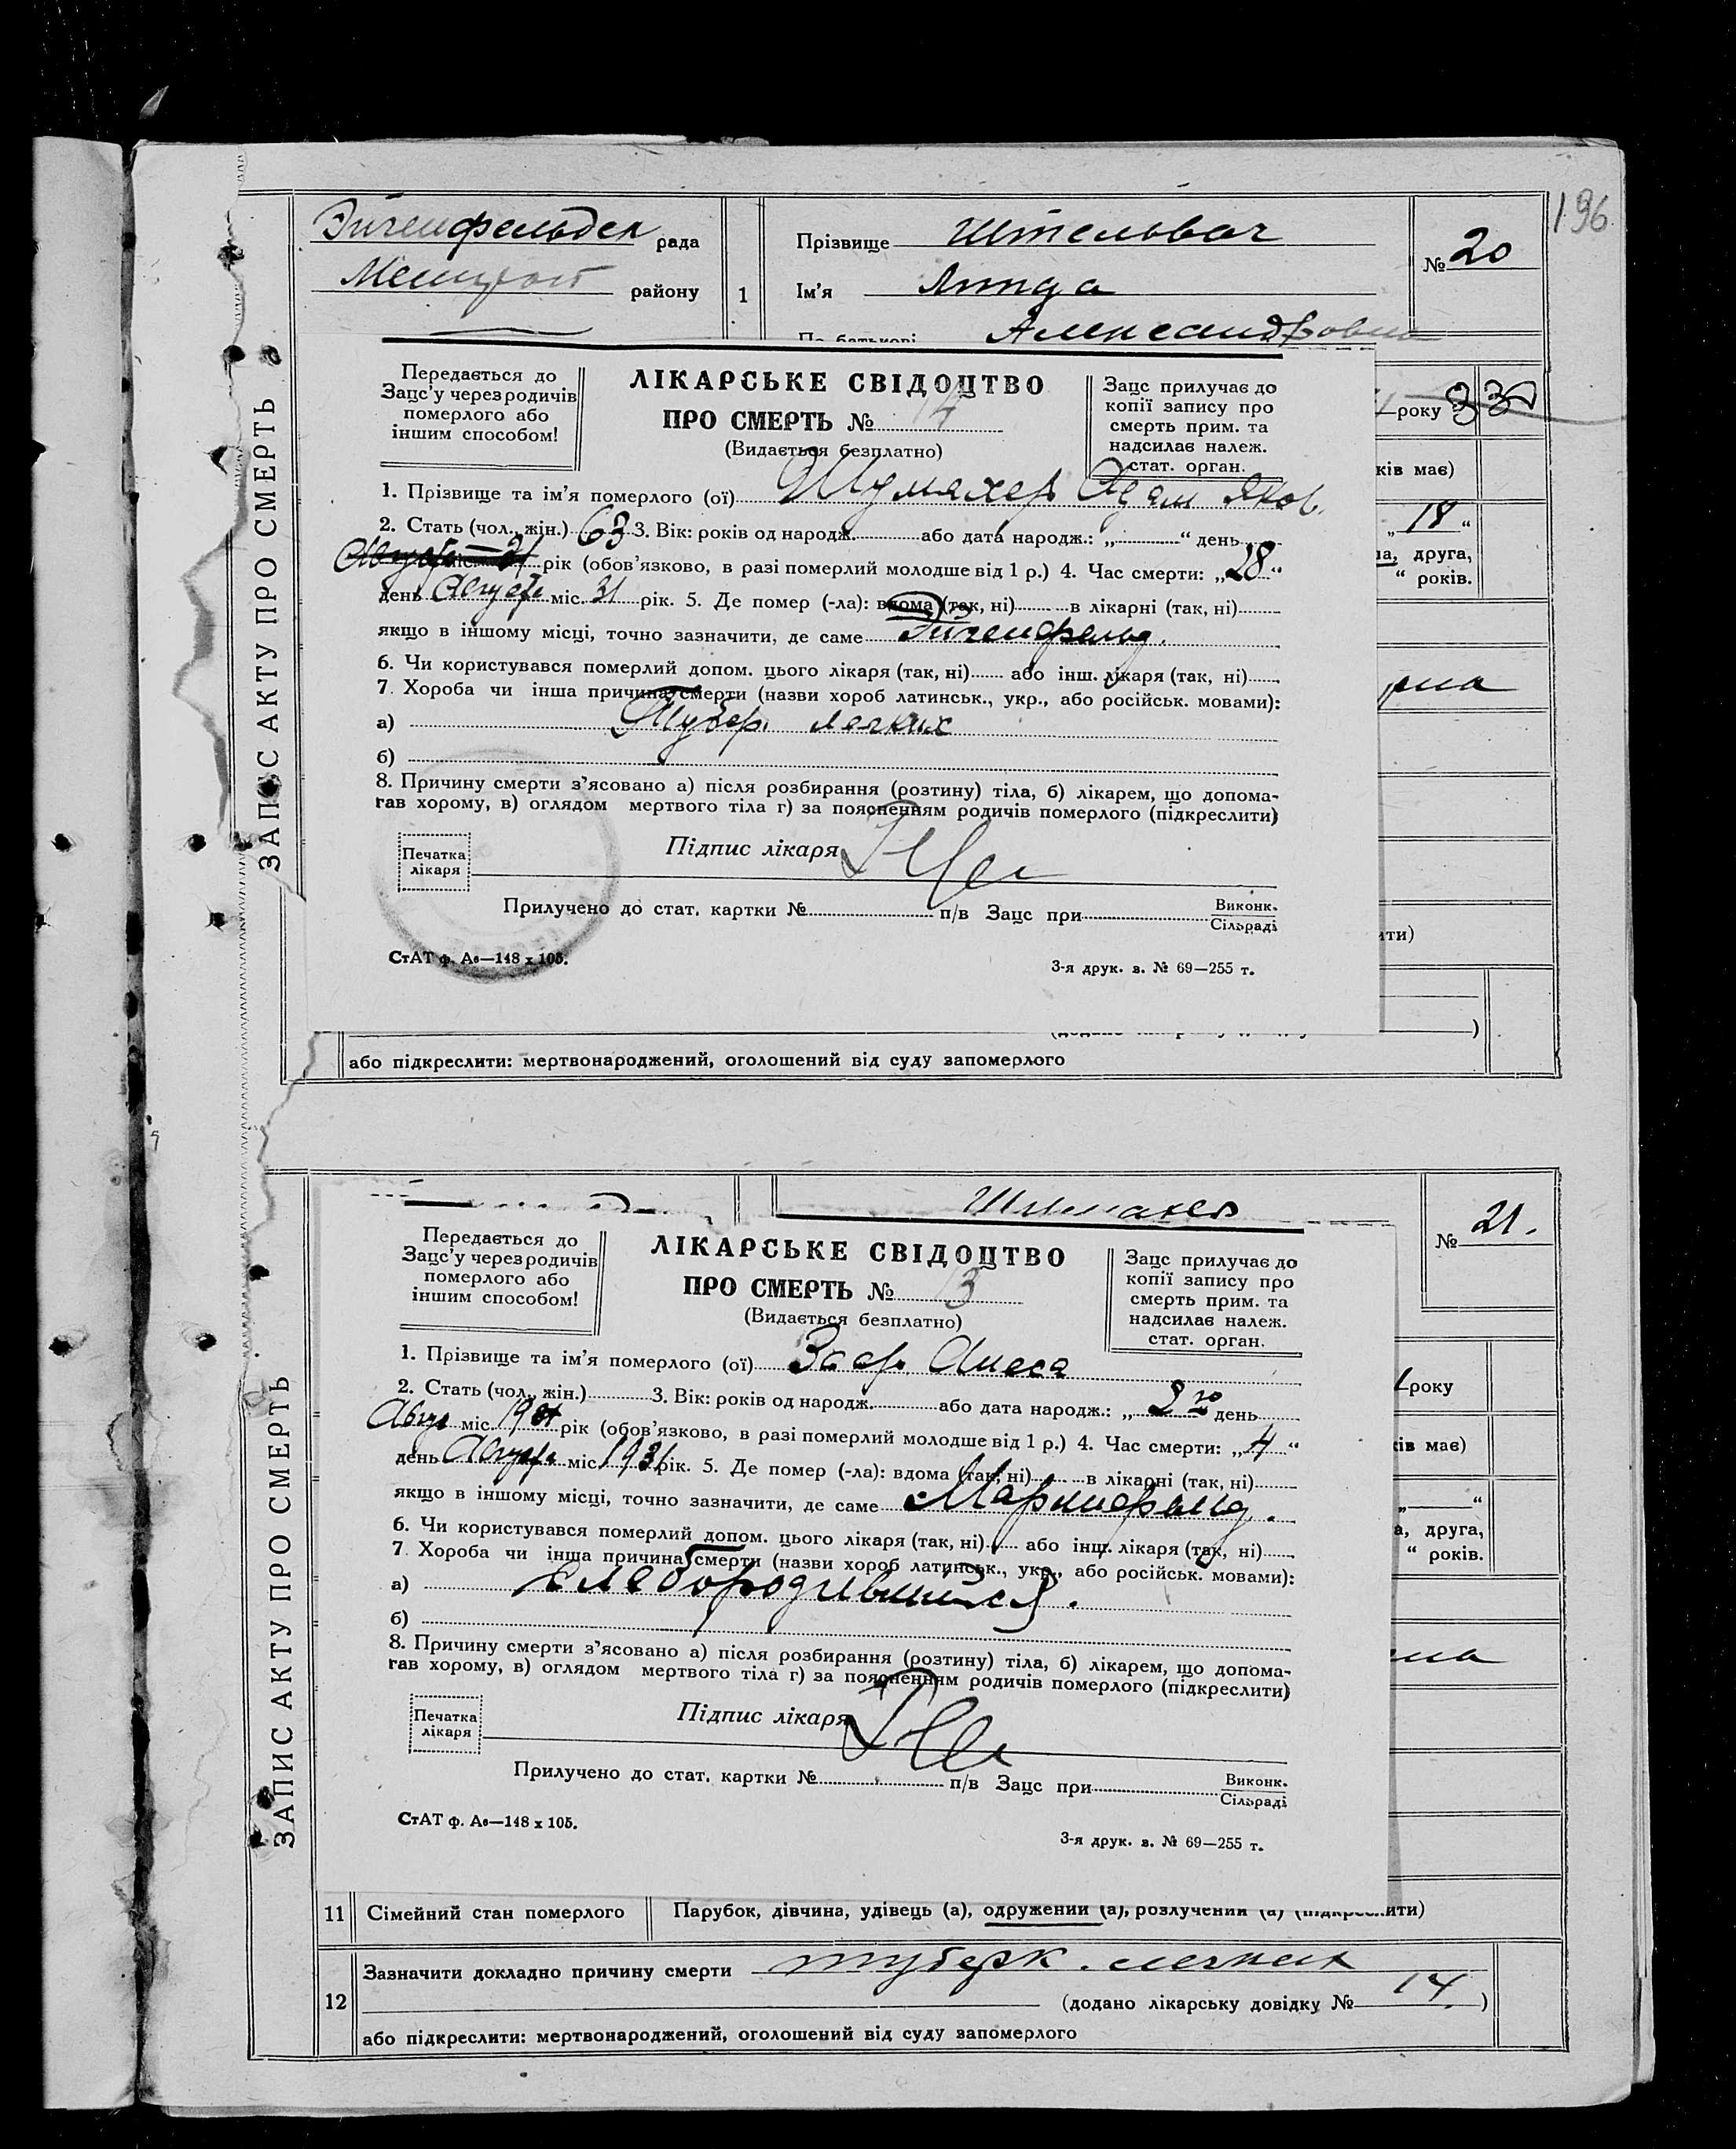 196
Эйгенфельдск рада
району
1
Прізвище Штельвах
Ім'я Линда
По батькові Александровна
№ 20
ЗАПИС АКТУ ПРО СМЕРТЬ
Передається до
Зацс'у через родичів
померлого або
іншим способом!
ЛІКАРСЬКЕ СВІДОЦТВО
ПРО СМЕРТЬ № 14
(Видається безплатно)
Зацс прилучає до
копії запису про
смерть прим. та
надсилає належ.
стат. орган.
року
ків має)
„ 18 “
на, друга,
“ років.
1. Прізвище та ім'я померлого (ої) Шумахер Адам Яков.
2. Стать (чол., жін.) 63 3. Вік: років од народж. або дата народж.: „ “ день
рік (обов'язково, в разі померлий молодше від 1 р.) 4. Час смерти: „28“
день Августа міс. 31 рік. 5. Де помер (-ла): вдома (так, ні) в лікарні (так, ні)
якщо в іншому місці, точно зазначити, де саме Эйгенфельд.
6. Чи користувався померлий допом. цього лікаря (так, ні) або інш. лікаря (так, ні)
7. Хороба чи інша причина смерти (назви хороб латинськ., укр., або російськ. мовами):
а) Тубер. легких
б)
8. Причину смерти з'ясовано а) після розбирання (розтину) тіла, б) лікарем, що допома-
гав хорому, в) оглядом мертвого тіла г) за поясненням родичів померлого (підкреслити)
Печатка
лікаря
Підпис лікаря
Прилучено до стат. картки № п/в Зацс при Виконк.
Сільраді
СтАТ ф. А6—148 х 105.
3-я друк. з. № 69—255 т.
ити)
)
або підкреслити: мертвонароджений, оголошений від суду запомерлого
ЗАПИС АКТУ ПРО СМЕРТЬ
Шумахер
№ 21.
Передається до
Зацс'у через родичів
померлого або
іншим способом!
ЛІКАРСЬКЕ СВІДОЦТВО
ПРО СМЕРТЬ № 13
(Видається безплатно)
Зацс прилучає до
копії запису про
смерть прим. та
надсилає належ.
стат. орган.
року
ків має)
„ “
а, друга,
“ років.
1. Прізвище та ім'я померлого (ої)
2. Стать (чол., жін.) 3. Вік: років од народж. або дата народж.: „ 2го день
Авгус міс. 1931 рік (обов'язково, в разі померлий молодше від 1 р.) 4. Час смерти: „4“
день Августа міс 1931 рік. 5. Де помер (-ла): вдома (так, ні) в лікарні (так, ні)
якщо в іншому місці, точно зазначити, де саме Мариинфельд.
6. Чи користувався померлий допом. цього лікаря (так, ні) або інш. лікаря (так, ні)
7. Хороба чи інша причина смерти (назви хороб латинськ., укр., або російськ. мовами):
а) слабородившийся.
б)
8. Причину смерти з'ясовано а) після розбирання (розтину) тіла, б) лікарем, що допома-
гав хорому, в) оглядом мертвого тіла г) за поясненням родичів померлого (підкреслити)
Печатка
лікаря
Підпис лікаря
Прилучено до стат. картки № п/в Зацс при Виконк.
Сільраді
СтАТ ф. А6—148 х 105.
3-я друк. з. № 69—255 т.
11 Сімейний стан померлого Парубок, дівчина, удівець (а), одружений (а), розлучений (а) (підкреслити)
12 Зазначити докладно причину смерти туберк. легких
(додано лікарську довідку № 14.)
або підкреслити: мертвонароджений, оголошений від суду запомерлого